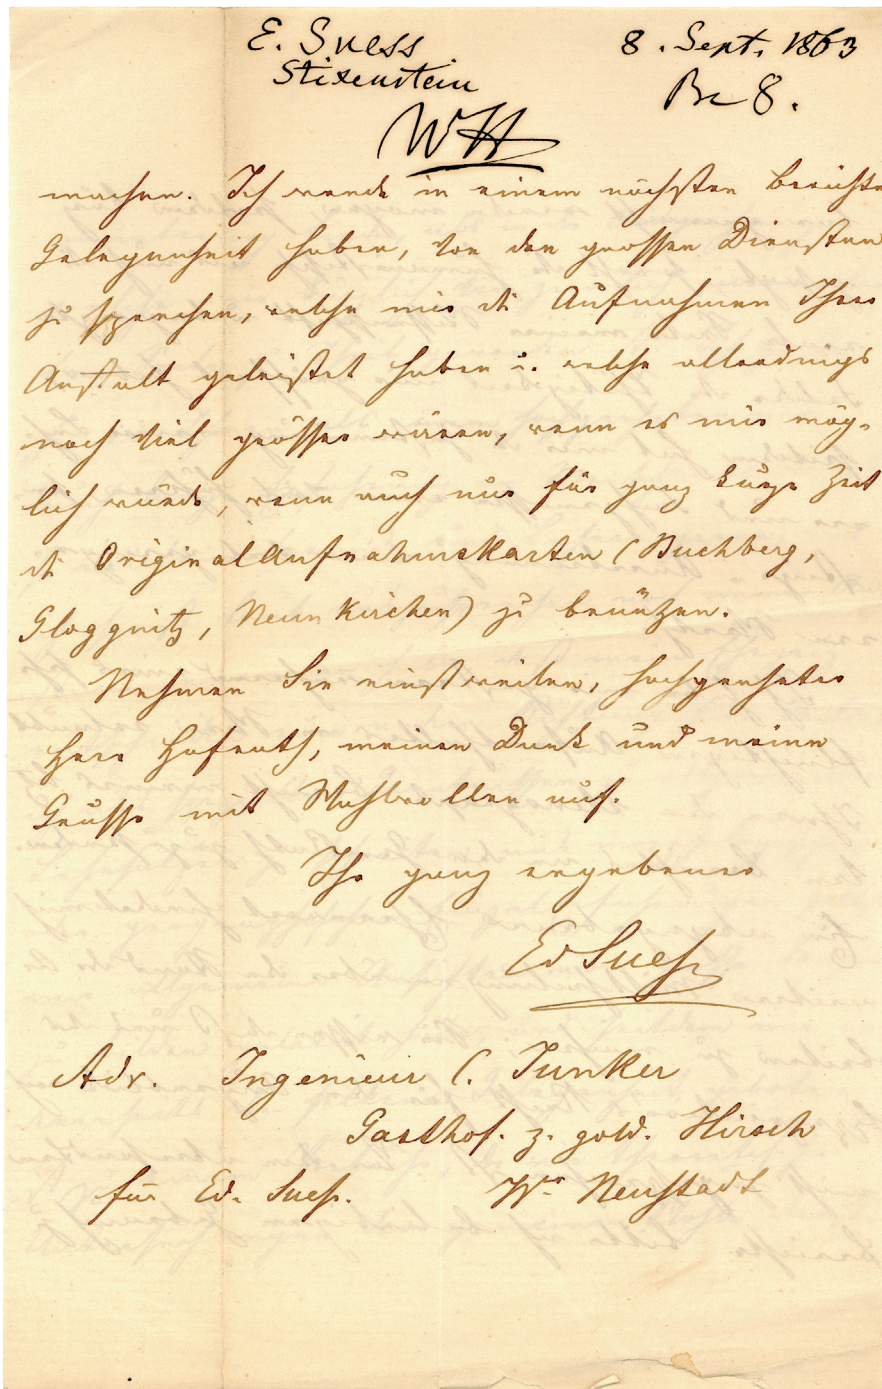 E. Suess 8. Sept. 1863
Stixenstein Br 8.
WH
machen. Ich werde in einem nächsten Berichte
Gelegenheit haben, von den grossen Diensten
zu sprechen, welche mir die Aufnahmen Ihrer
Anstalt geleistet haben u. welche allerdings
noch viel grösser wären, wenn es mir mög-
lich würde, wenn auch nur für ganz kurze Zeit
die OriginalAufnahmskarten (Buchberg,
Gloggnitz, Neunkirchen) zu benützen.
Nehmen Sie einstweilen, hochgeehrter
Herr Hofrath, meinen Dank und meine
Grüsse mit Wohlwollen auf.
Ihr ganz ergebener
Ed Suess
Adr. Ingenieur C. Junker
Gasthof. z. gold. Hirsch
für Ed. Suess. Wr. Neustadt